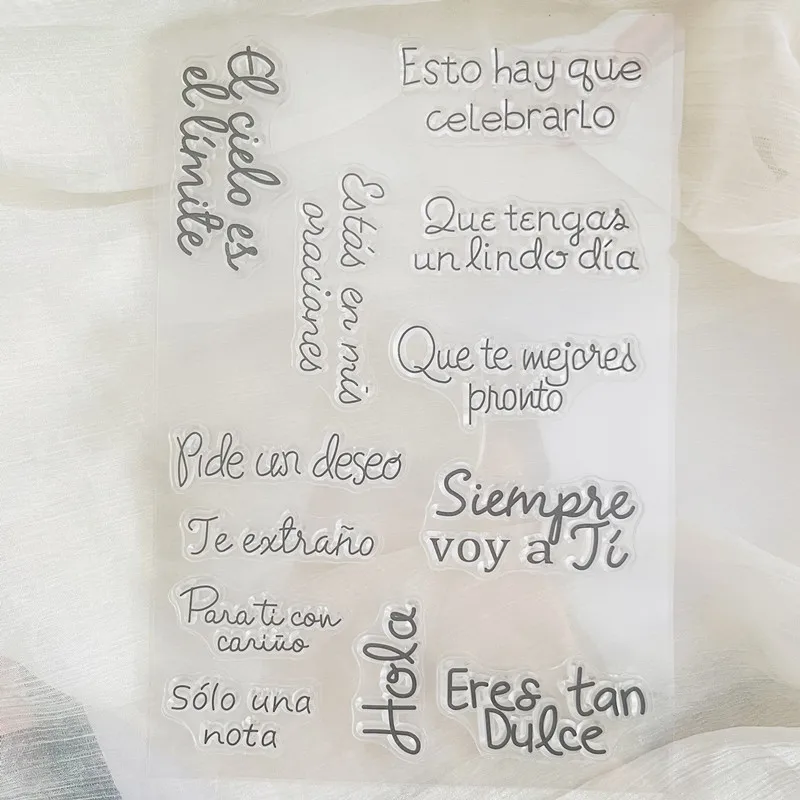 El cielo es
el límite
Esto hay que
celebrarlo
Estás en mis
oraciones
Que tengas
un lindo día
Que te mejores
pronto
Pide un deseo
Siempre
voy a Tí
Te extraño
Para ti con
cariño
Hola
Sólo una
nota
Eres tan
Dulce